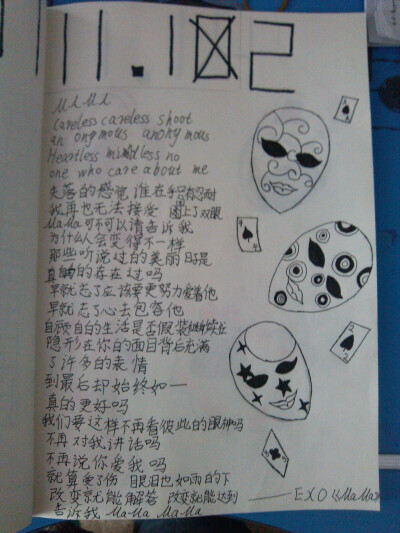 11.102
MAMA
Careless careless shoot
anonymous anonymous
Heartless mindless no
one who care about me
失落的感觉 谁在乎 只有忍耐
我再也无法接受 闭上了双眼
MaMa 可不可以请告诉我
为什么人会变得不一样
那些听说过的美丽时是
真的存在过吗
早就忘了应该要更努力爱着他
早就忘了心去包容他
自顾自的生活是否假装继续在
隐形在你的面目背后充满
了许多的表情
到最后却始终如一
真的更好吗
我们要这样不再看彼此的眼神吗
不再对我讲话吗
不再说你爱我吗
就算受了伤 眼泪也如雨的下
改变就能解答 改变就能达到 —— EXO《MaMa》
告诉我 MaMa MaMa